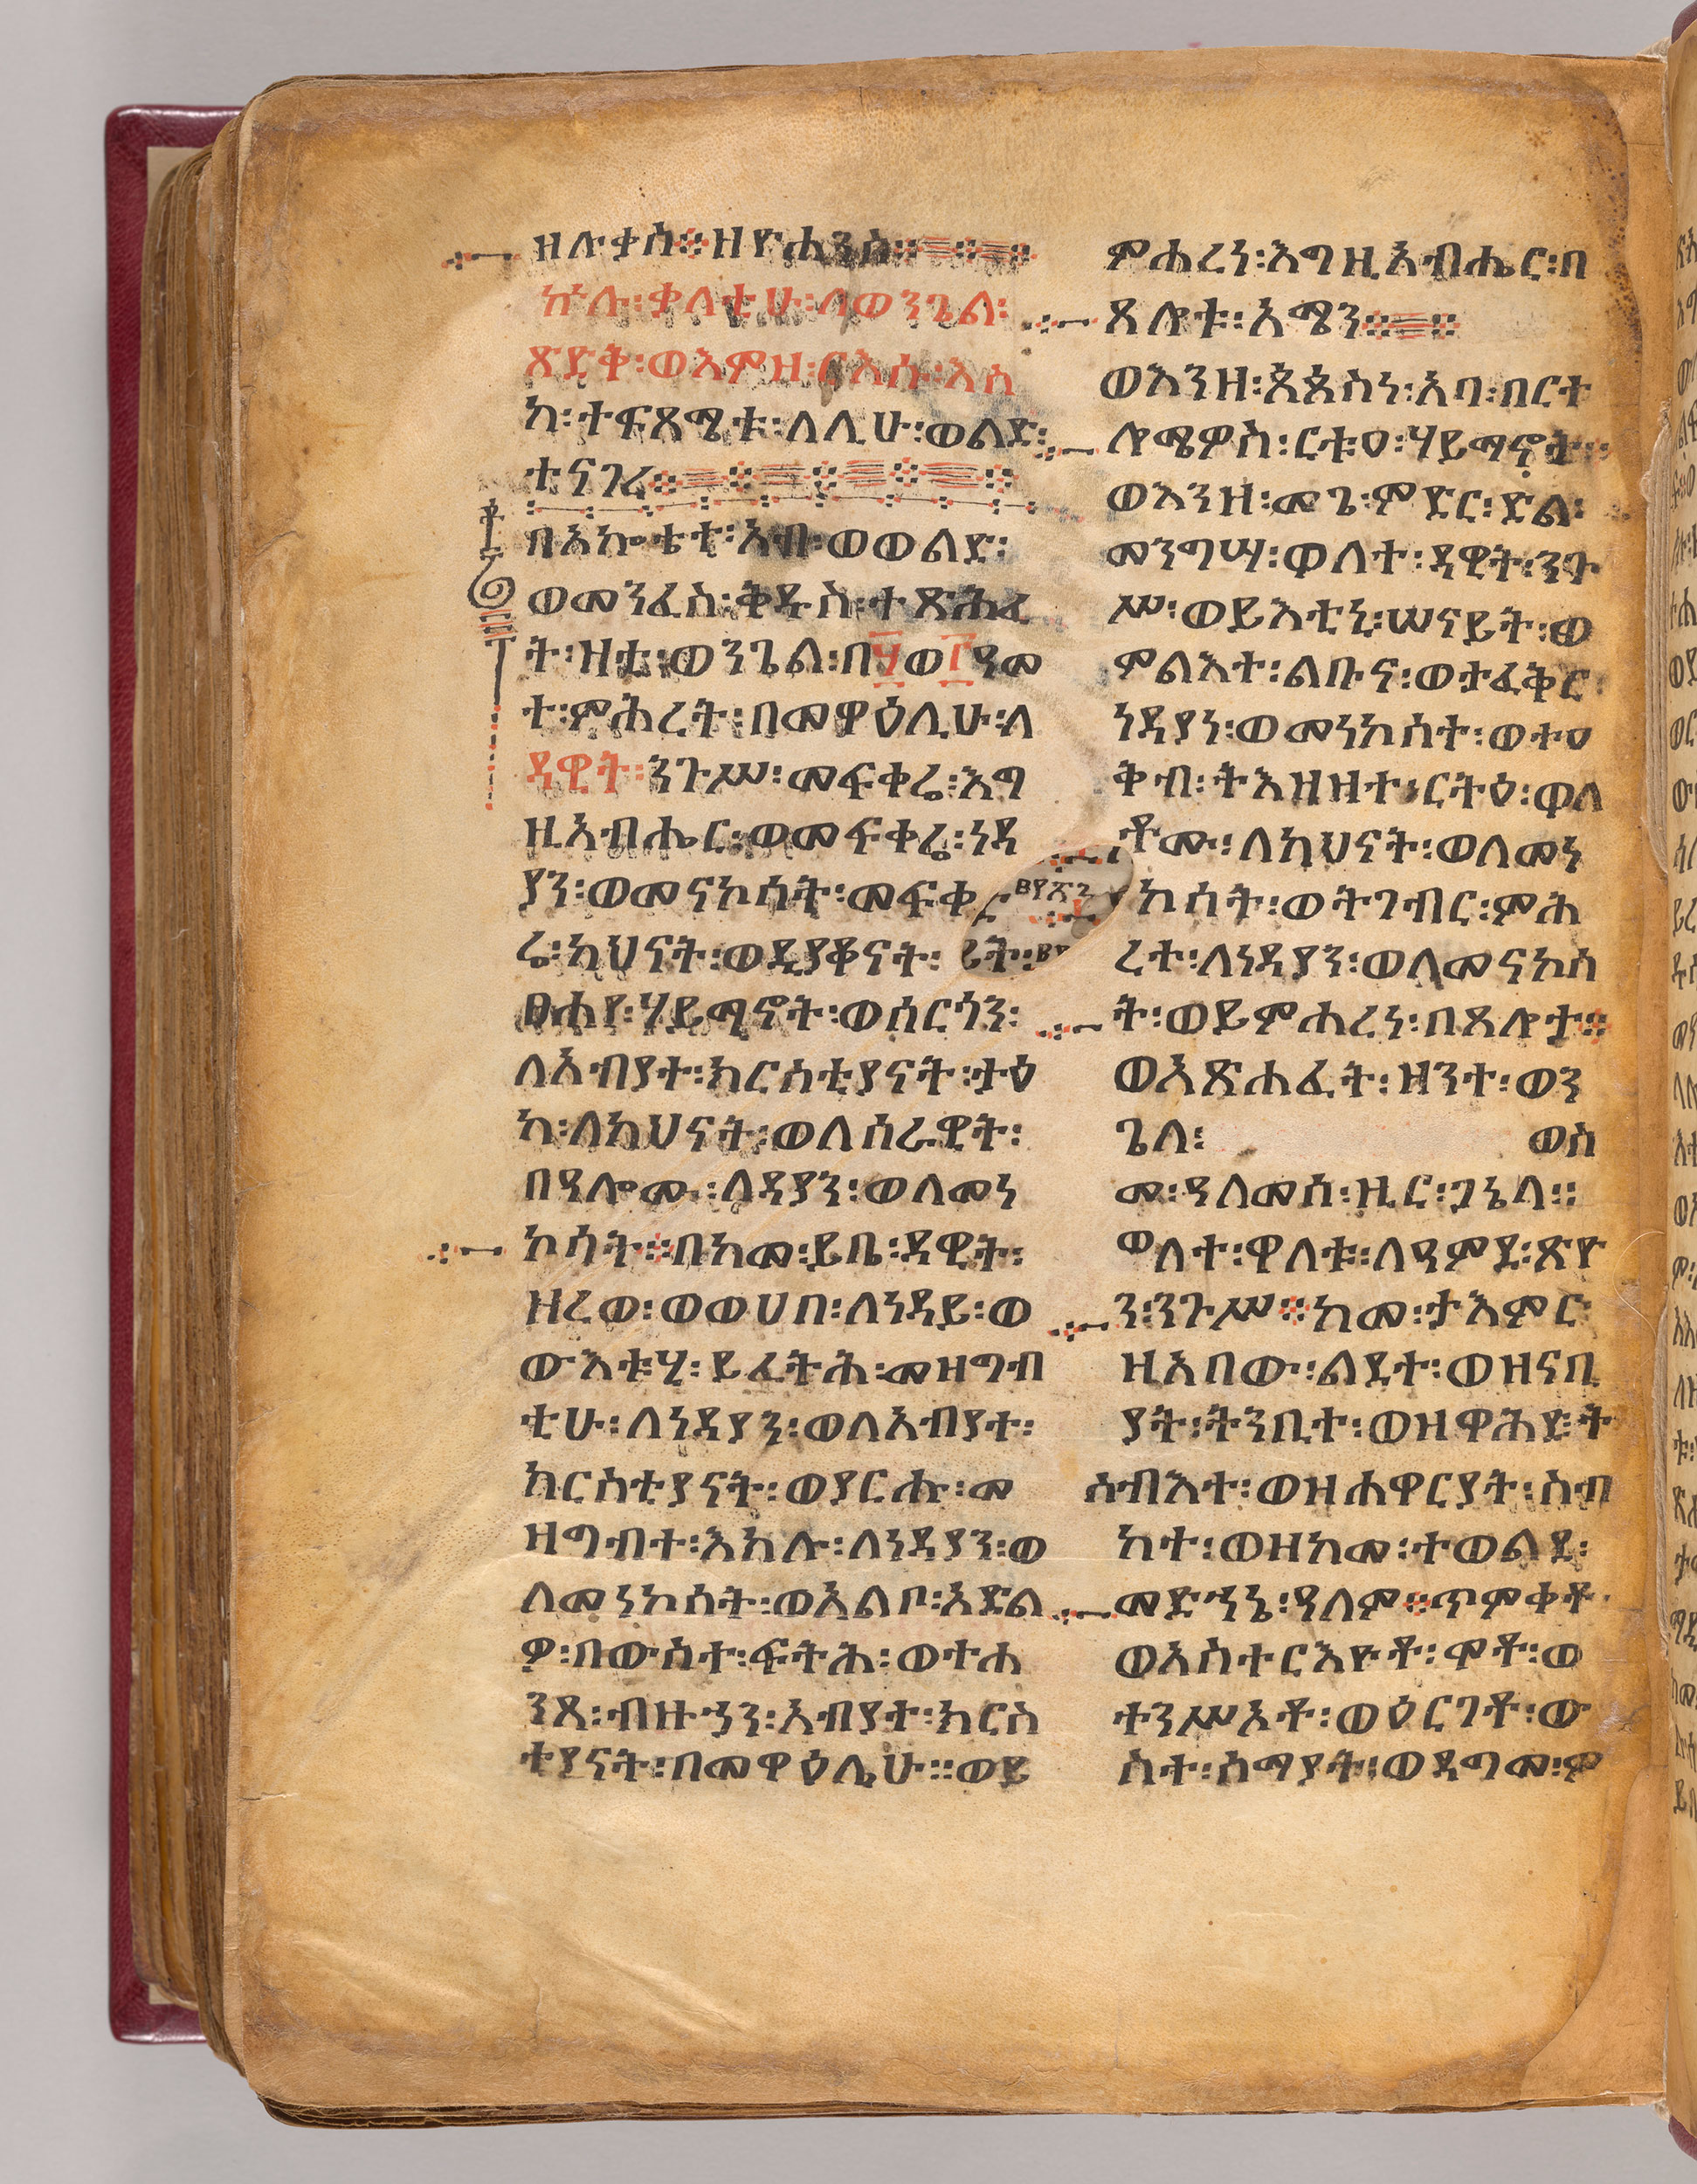 ዘሉቃስ፨ዘዮሐንስ፨
ኵሉ፡ቃለቲሁ፡ለወንጌል፡
ጽድቅ፡ወእምዘ፡ርእሱ፡እስ
ከ፡ተፍጻሜቱ፡ለሊሁ፡ወልድ፡
ተናገረ፨
በአኰቴተ፡አብ፡ወወልድ፡
ወመንፈስ፡ቅዱስ፡ተጽሕፈ
ት፡ዛቲ፡ወንጌል፡በ፶ወ፲ዓመ
ተ፡ምሕረት፡በመዋዕሊሁ፡ለ
ዳዊት፡ንጉሥ፡መፍቀሬ፡እግ
ዚአብሔር፡ወመፍቀሬ፡ነዳ
ያን፡ወመናኮሳት፡መፍቀ
ሬ፡ካህናት፡ወዲያቆናት፡
ፀሐየ፡ሃይማኖት፡ወሰርጎን፡
ለአብያተ፡ክርስቲያናት፡ታዕ
ካ፡ለካህናት፡ወለሰራዊት፡
በዓሎሙ፡ለዳያን፡ወለመነ
ኮሳት፨በከመ፡ይቤ፡ዳዊት፡
ዘረወ፡ወወሀበ፡ለነዳይ፡ወ
ውእቱሂ፡ይፈትሕ፡መዘግብ
ቲሁ፡ለነዳያን፡ወለአብያተ፡
ክርስቲያናት፡ወያርሑ፡መ
ዛግብተ፡እክሉ፡ለነዳያን፡ወ
ለመነኮሳት፡ወአልቦ፡አድል
ዎ፡በውስተ፡ፍትሕ፡ወተሐ
ንጻ፡ብዙኃን፡አብያተ፡ክርስ
ቲያናት፡በመዋዕሊሁ።ወይ
ምሐረነ፡እግዚአብሔር፡በ
ጸሎቱ፡አሜን፨
ወእንዘ፡ጳጳስነ፡አባ፡በርተ
ሎሜዎስ፡ርቱዐ፡ሃይማኖት፨
ወእንዘ፡መጌ፡ምድር፡ድል፡
መንግሣ፡ወለተ፡ዳዊት፡ንጉ
ሥ፡ወይእቲኒ፡ሠናይት፡ወ
ምልእተ፡ልቡና፡ወታፈቅር፡
ነዳያነ፡ወመነኮሳተ፡ወተዐ
ቅብ፡ትእዛዘተ፡ርትዕ፡ወለ
ቶሙ፡ለካህናት፡ወለመነ
ኮሳት፡ወትገብር፡ምሕ
ረተ፡ለነዳያን፡ወለመናኮሳ
ት፡ወይምሐረነ፡በጸሎታ፨
ወአጽሐፈት፡ዘንተ፡ወን
ጌለ፡ ወስ
መ፡ዓለመሰ፡ዚር፡ጋኔላ።
ወለተ፡ዋለቱ፡ለዓምደ፡ጽዮ
ን፡ንጉሥ፨ከመ፡ታእምር
ዚአበው፡ልደተ፡ወዘነቢ
ያት፡ትንቢተ፡ወዘዋሕደ፡ት
ሰብእተ፡ወዘሐዋርያት፡ስብ
ከተ፡ወዘከመ፡ተወልደ፡
መድኃኔ፡ዓለም፨ጥምቀቶ
ወአስተርእዮቶ፡ሞቶ፡ወ
ተንሥኦቶ፡ወዕርገቶ፡ው
ስተ፡ሰማያት፡ወዳግመ፡ም